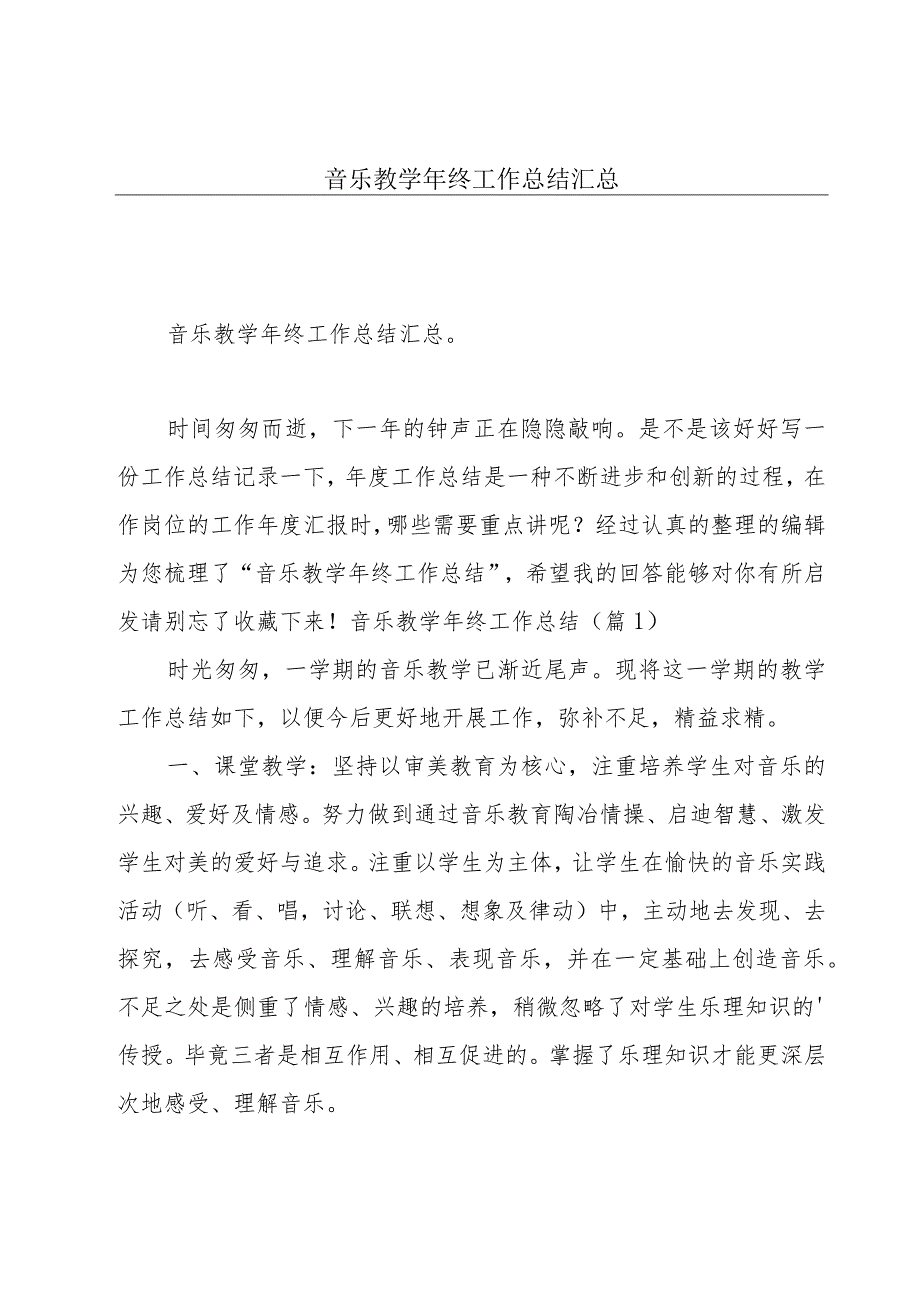 音乐教学年终工作总结汇总
音乐教学年终工作总结汇总。
时间匆匆而逝，下一年的钟声正在隐隐敲响。是不是该好好写一
份工作总结记录一下，年度工作总结是一种不断进步和创新的过程，在
作岗位的工作年度汇报时，哪些需要重点讲呢？经过认真的整理的编辑
为您梳理了“音乐教学年终工作总结”，希望我的回答能够对你有所启
发请别忘了收藏下来！音乐教学年终工作总结（篇1）
时光匆匆，一学期的音乐教学已渐近尾声。现将这一学期的教学
工作总结如下，以便今后更好地开展工作，弥补不足，精益求精。
一、课堂教学：坚持以审美教育为核心，注重培养学生对音乐的
兴趣、爱好及情感。努力做到通过音乐教育陶冶情操、启迪智慧、激发
学生对美的爱好与追求。注重以学生为主体，让学生在愉快的音乐实践
活动（听、看、唱，讨论、联想、想象及律动）中，主动地去发现、去
探究，去感受音乐、理解音乐、表现音乐，并在一定基础上创造音乐。
不足之处是侧重了情感、兴趣的培养，稍微忽略了对学生乐理知识的'
传授。毕竟三者是相互作用、相互促进的。掌握了乐理知识才能更深层
次地感受、理解音乐。